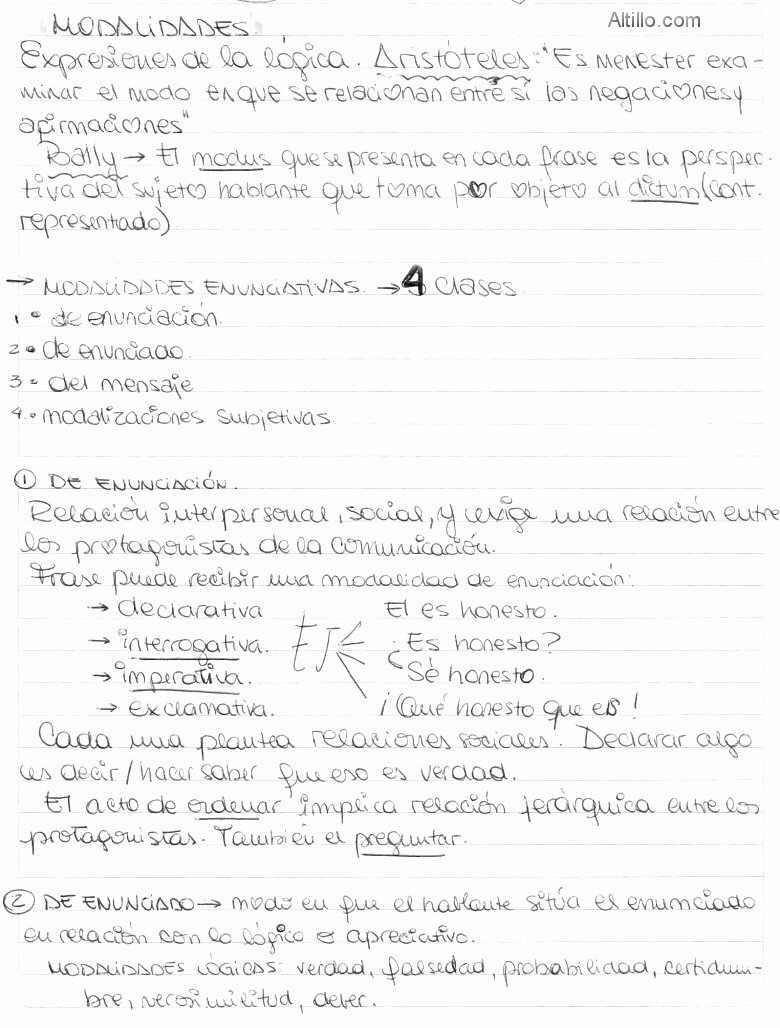 MODALIDADES
Altillo.com
Expresiones de la lógica. Aristóteles: "Es menester exa-
minar el modo en que se relacionan entre sí las negaciones y
afirmaciones"
Bally → El modus que se presenta en cada frase es la perspec-
tiva del sujeto hablante que toma por objeto al dictum (cont.
representado)
→ MODALIDADES ENUNCIATIVAS. → 4 clases.
1 • de enunciación.
2 • de enunciado.
3 • del mensaje
4 • modalizaciones subjetivas.
① DE ENUNCIACIÓN.
Relación interpersonal, social, y exige una relación entre
los protagonistas de la comunicación.
Frase puede recibir una modalidad de enunciación:
→ declarativa El es honesto.
→ interrogativa. EJ ¿Es honesto?
→ imperativa. Sé honesto.
→ exclamativa. ¡Qué honesto que es!
Cada una plantea relaciones sociales. Declarar algo
es decir/hacer saber que eso es verdad.
El acto de ordenar implica relación jerárquica entre los
protagonistas. También el preguntar.
② DE ENUNCIADO → modo en que el hablante sitúa el enunciado
en relación con lo lógico o apreciativo.
MODALIDADES LÓGICAS: verdad, falsedad, probabilidad, certidum-
bre, verosimilitud, deber.